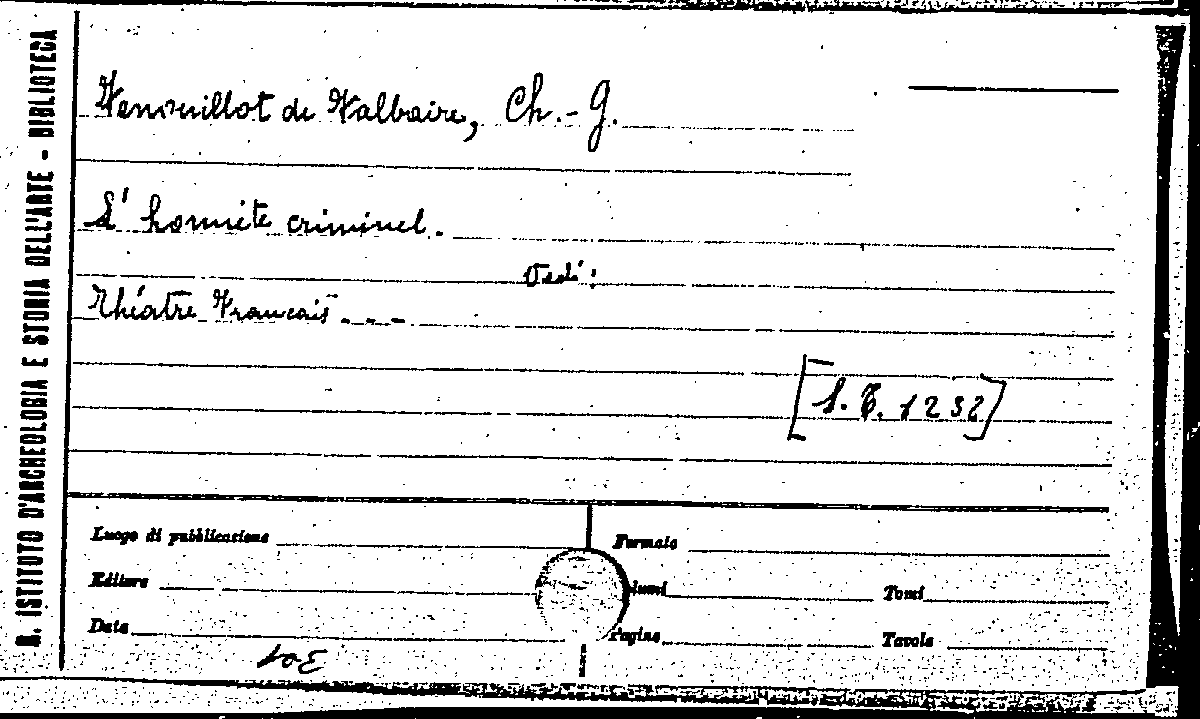 R. ISTITUTO D'ARCHEOLOGIA E STORIA DELL'ARTE - BIBLIOTECA
Fenouillot de Falbaire, Ch.-G.
L'honnête criminel.
Vedi:
Théâtre Français - - -
[S. T. 1232]
Luogo di pubblicazione
Formato
Editore
lumi
Tomi
Data
Pagine
Tavole